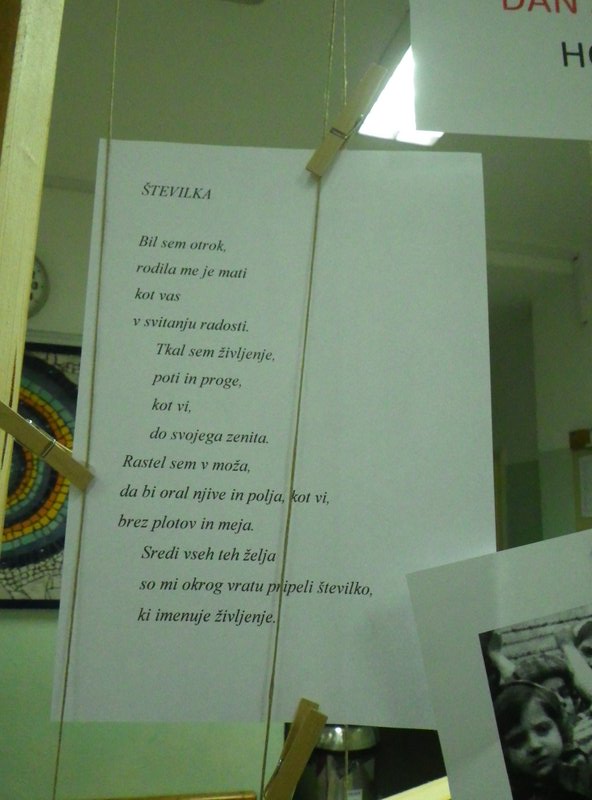 DAN
ŠTEVILKA
Bil sem otrok,
rodila me je mati
kot vas
v svitanju radosti.
Tkal sem življenje,
poti in proge,
kot vi,
do svojega zenita.
Rastel sem v moža,
da bi oral njive in polja, kot vi,
brez plotov in meja.
Sredi vseh teh želja
so mi okrog vratu pripeli številko,
ki imenuje življenje.